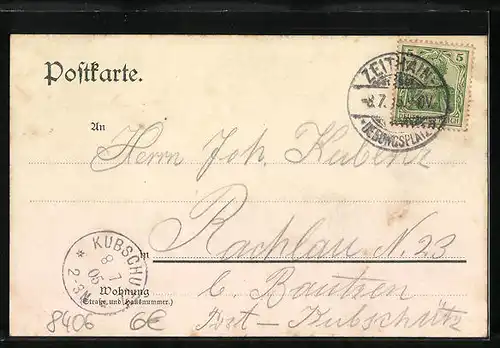 Postkarte.
5 5
ZEITHAIN
8.7.
UEBUNGSPLATZ
An
Herrn Joh. Kubenz
in Rachlau N. 23
KUBSCHÜ
8 7
05
2-3N
Wohnung
(Straße und Hausnummer.)
b. Bautzen
Post-Kubschütz
8406 6€